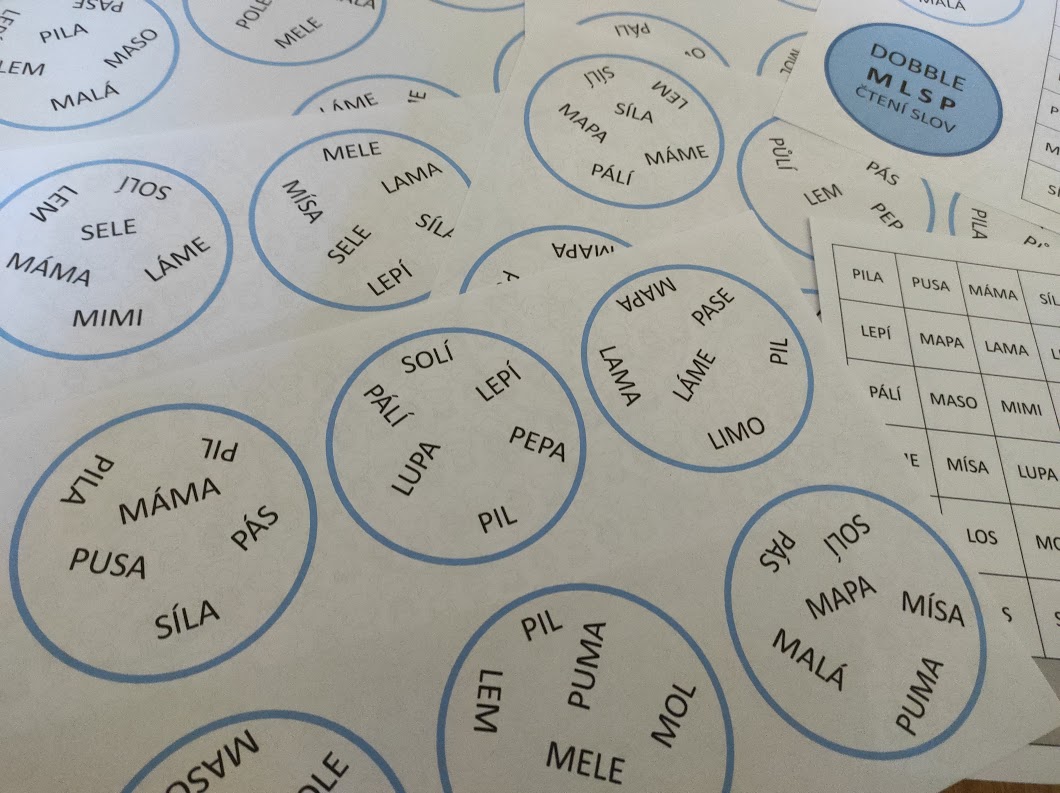 PASE
PILA
LEM
MASO
MALÁ
POLE
MELE
PÁLÍ
MALÁ
DOBBLE
M L S P
ČTENÍ SLOV
LÁME
SÍLÍ
LEM
SÍLA
MAPA
MÁME
PÁLÍ
PŮLÍ
PÁS
LEM
PILA
LEM
SOLI
SELE
MÁMA
LÁME
MIMI
MELE
LAMA
MÍSA
SELE
SÍLA
LEPÍ
MAPA
MAPA
PASE
LAMA
LÁME
PIL
LIMO
SOLÍ
PÁLÍ
LEPÍ
LUPA
PEPA
PIL
PILA
PIL
MÁMA
PÁS
PUSA
SÍLA
PIL
PUMA
LEM
MOL
MELE
PÁS
SOLÍ
MAPA
MÍSA
MALÁ
PUMA
MASO
PILA PUSA MÁMA
LEPÍ MAPA LAMA
PÁLÍ MASO MIMI
MÍSA LUPA
LOS